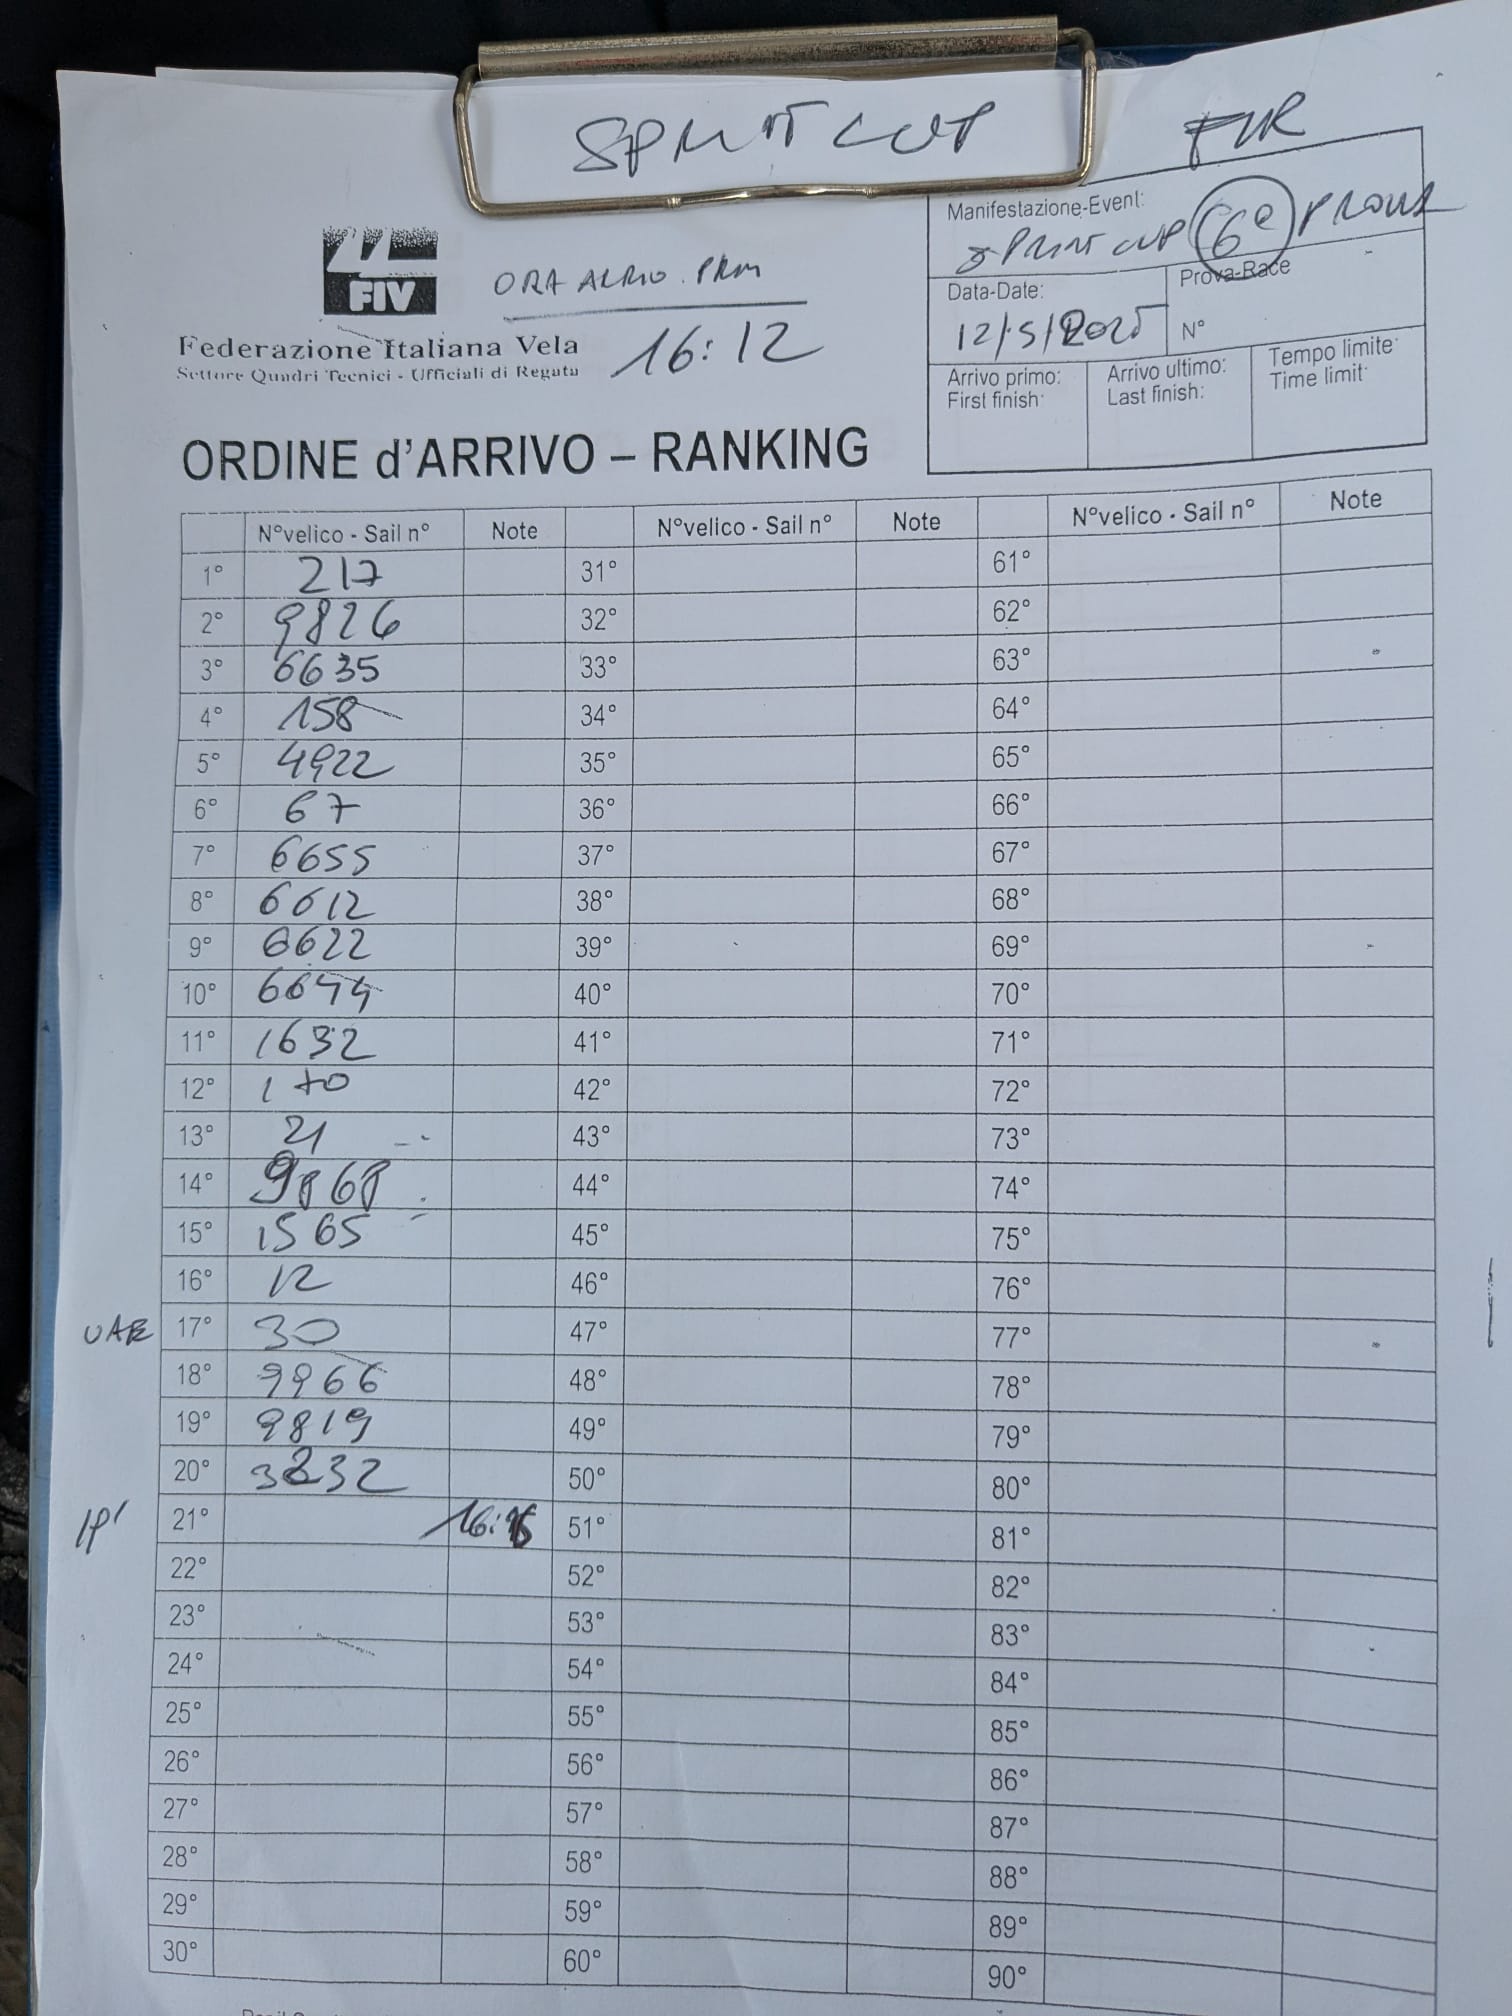 SPRINT CUP
Manifestazione-Event:
SPRINT CUP 6ª PROVA
FIV
ORA ARRIVO PRIM
16:12
Federazione Italiana Vela
Settore Quadri Tecnici - Ufficiali di Regata
Data-Date:
12/5/2025
Prova-Race
N°
Arrivo primo:
First finish:
Arrivo ultimo:
Last finish:
Tempo limite:
Time limit:
ORDINE d'ARRIVO – RANKING
N°velico - Sail n° Note N°velico - Sail n° Note N°velico - Sail n° Note
1° 217 31° 61°
2° 9826 32° 62°
3° 6635 33° 63°
4° 158 34° 64°
5° 4922 35° 65°
6° 67 36° 66°
7° 6655 37° 67°
8° 6612 38° 68°
9° 6622 39° 69°
10° 6644 40° 70°
11° 1632 41° 71°
12° 170 42° 72°
13° 21 43° 73°
14° 9868 44° 74°
15° 1565 45° 75°
16° 12 46° 76°
UAE 17° 30 47° 77°
18° 9966 48° 78°
19° 9819 49° 79°
20° 3232 50° 80°
21° 51° 81°
22° 52° 82°
23° 53° 83°
24° 54° 84°
25° 55° 85°
26° 56° 86°
27° 57° 87°
28° 58° 88°
29° 59° 89°
30° 60° 90°